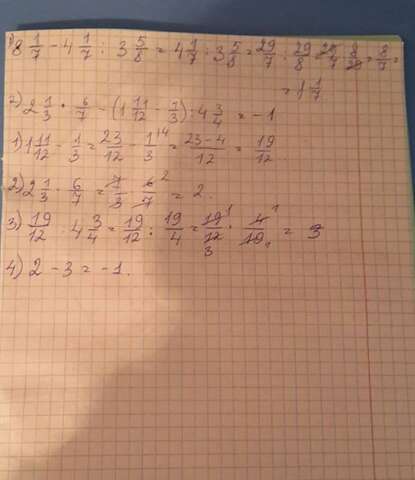 1) 8 1/7 - 4 1/7 : 3 5/8 = 4 1/7 : 3 5/8 = 29/7 : 29/8 = 29/7 · 8/29 = 8/7 =
= 1 1/7
2) 2 1/3 · 6/7 - (1 11/12 - 1/3) : 4 3/4 = -1
1) 1 11/12 - 1/3 = 23/12 - 1/3 = (23-4)/12 = 19/12
2) 2 1/3 · 6/7 = 7/3 · 6/7 = 2.
3) 19/12 : 4 3/4 = 19/12 : 19/4 = 19/12 · 4/19 = 3
4) 2 - 3 = -1.